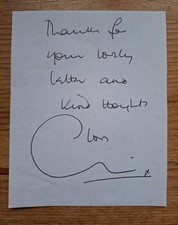 Thanks for
your lovely
letter and
kind thoughts
Love